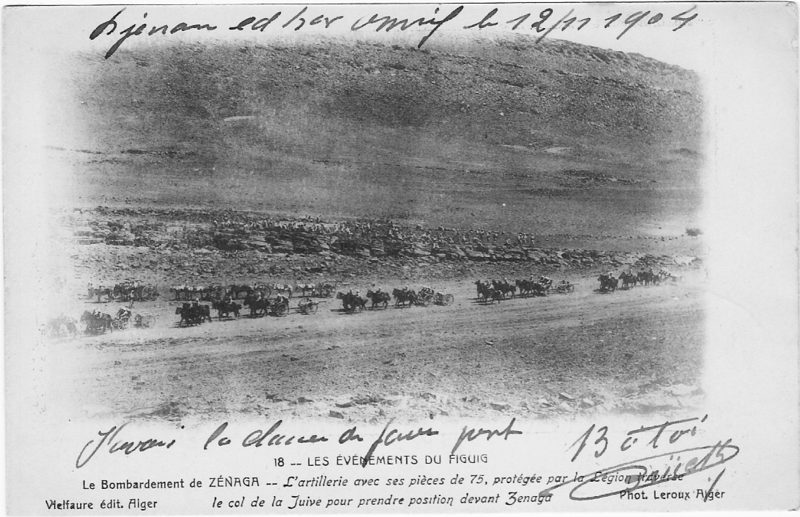 Djenan ed dar
le 12/11 1904
13 à toi
18 -- LES ÉVÉNEMENTS DU FIGUIG
Le Bombardement de ZÉNAGA -- L'artillerie avec ses pièces de 75, protégée par la Légion traverse
Vielfaure édit. Alger le col de la Juive pour prendre position devant Zenaga Phot. Leroux Alger